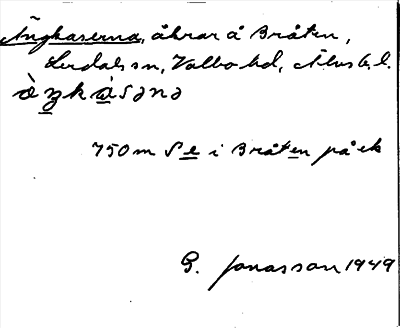 Ängkaserna, åkrar å Bråten,
Lerdals sn, Valbo hd, Älvsb. l.
750 m S e i Bråten på ek
G. Jonasson 1949